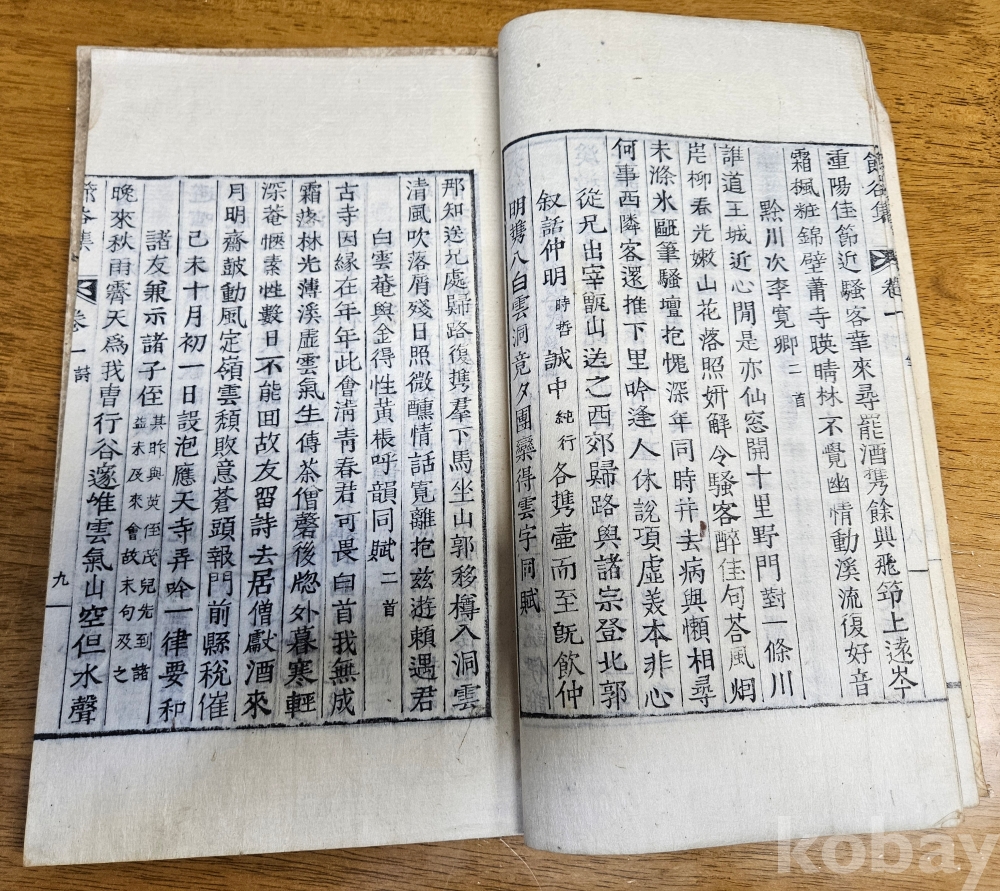 重陽佳節近騷客華來尋罷酒携餘興飛筇上遠岑
霜楓粧錦壁蕭寺暎晴林不覺幽情動溪流復好音
黔川次李寬卿二首
誰道王城近心閒是亦仙窓開十里野門對一條川
岸柳看光嫩山花落照姸解令騷客醉佳句荅風烟
未滌氷甌筆騷壇抱愧深年同時幷去病與懶相尋
何事西隣客還推下里吟逢人休說項虛美本非心
從兄出宰甑山送之西郊歸路與諸宗登北郭
叙話仲明時哲誠中純行各携壺而至旣飮仲
明携入白雲洞竟夕團欒得雲字同賦
那知送兄處歸路復携羣下馬坐山郭移樽入洞雲
淸風吹落屑殘日照微醺情話寬離抱玆遊賴遇君
白雲菴與金得性黃棖呼韻同賦二首
古寺因緣在年年此會淸靑春君可畏白首我無成
霜疼林光薄溪虛雲氣生傳茶僧磬後窓外暮寒輕
深菴愜素性數日不能回故友留詩去居僧獻酒來
月明齋皷動風定嶺雲頹敗意蒼頭報門前縣稅催
己未十月初一日設泡應天寺弄吟一律要和
諸友兼示諸子侄其昨與英侄茂兒先到諸益未及來會故末句及之
晩來秋雨霽天爲我曺行谷邃唯雲氣山空但水聲
卷一 詩
九
kobay